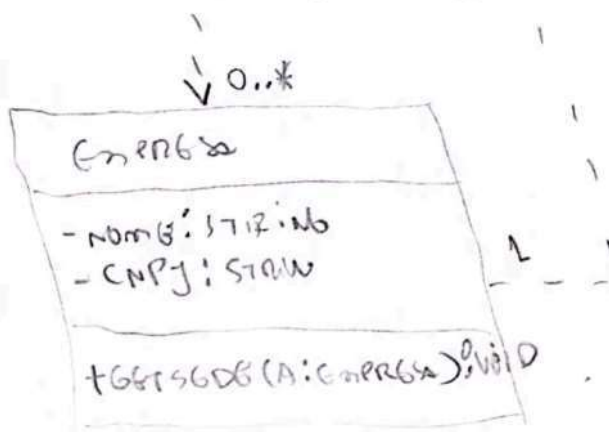 0..*
EMPRESA
- NOME: STRING
- CNPJ: STRIN
1
+GETSEDE(A:EMPRESA):VOID